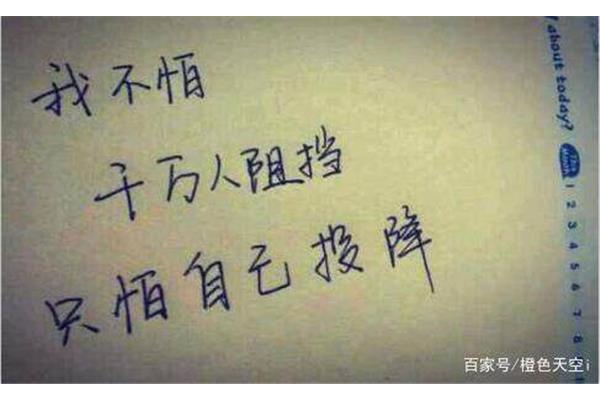 我不怕
千万人阻挡
只怕自己投降
about today?
This Month
1 2 3 4 5 6 7 8
百家号/橙色天空i